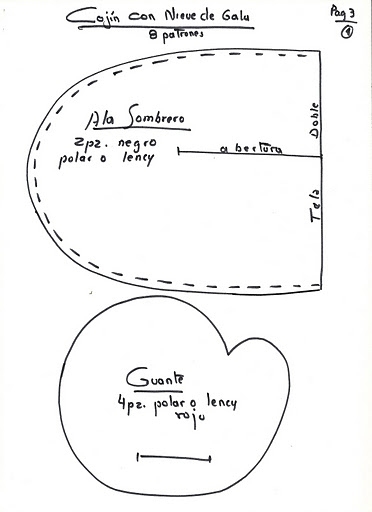 Cojín con Nieve de Galu
8 patrones
Pag 3
1
Ala Sombrero
2pz. negro
polar o lency
abertura
Tela Doble
Guante
4pz. polar o lency
rojo